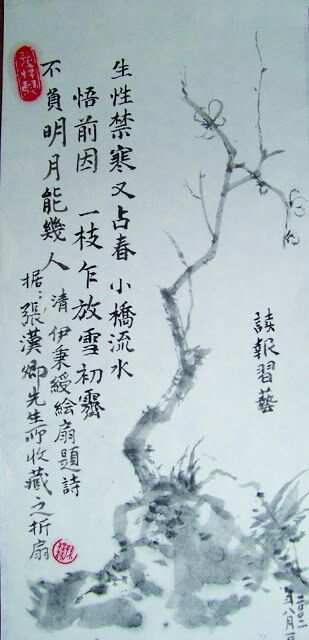 生性禁寒又占春 小橋流水
悟前因 一枝乍放雪初霽
不負明月能幾人
清 伊秉綬绘扇題詩
据：張漢卿先生所收藏之折扇
讀報習藝
二〇〇二
年八月